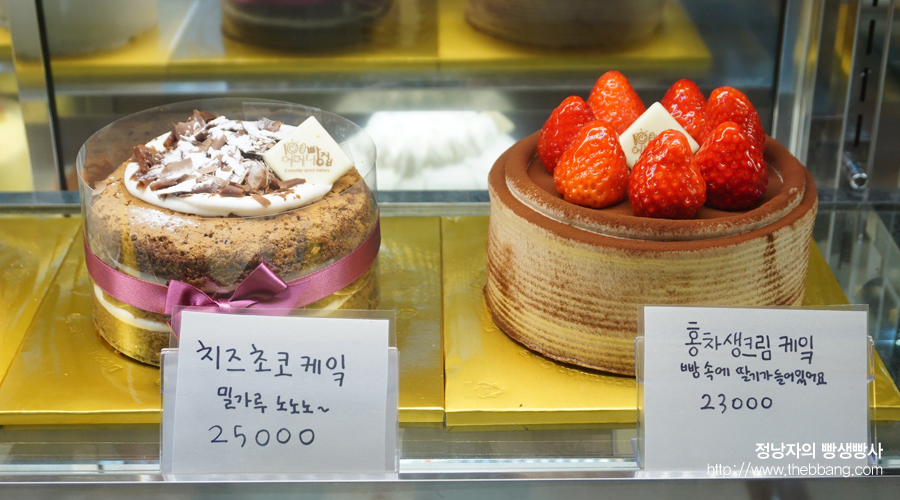 어머니빵
치즈초코케익
밀가루 노노노~
25000
홍차생크림 케익
빵 속에 딸기가 들어있어요
23000
정낭자의 빵생빵사
http://www.thebbang.com